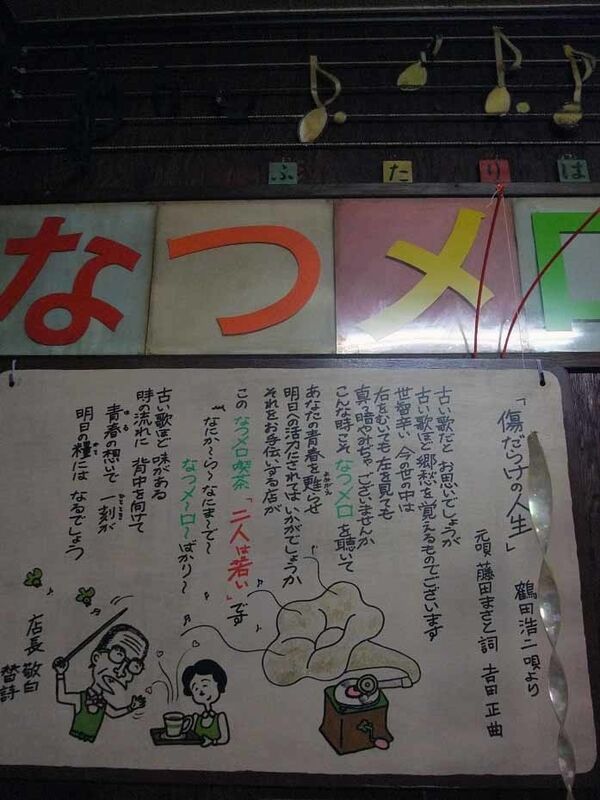 ふたりは
なつメロ
「傷だらけの人生」 鶴田浩二唄より
元唄 藤田まさと詞 吉田正曲
古い歌だと お思いでしょうが
古い歌ほど郷愁を覚えるものでございます
世智辛い 今の世の中は
右をむいても左を見ても
真っ暗やみじゃございませんか
こんな時こそ なつメロを聴いて
あなたの青春を甦らせ
明日への活力にされてはいかがでしょうか
それをお手伝いする店が
この なつメロ喫茶 「二人は若い」です
なにか〜ら〜なにま〜で〜
なつメ〜ロ〜ばかり〜
古い歌ほど 味がある
時の流れに 背中を向けて
青春の想いで 一刻が
明日の糧には なるでしょう
店長 敬白
替詩